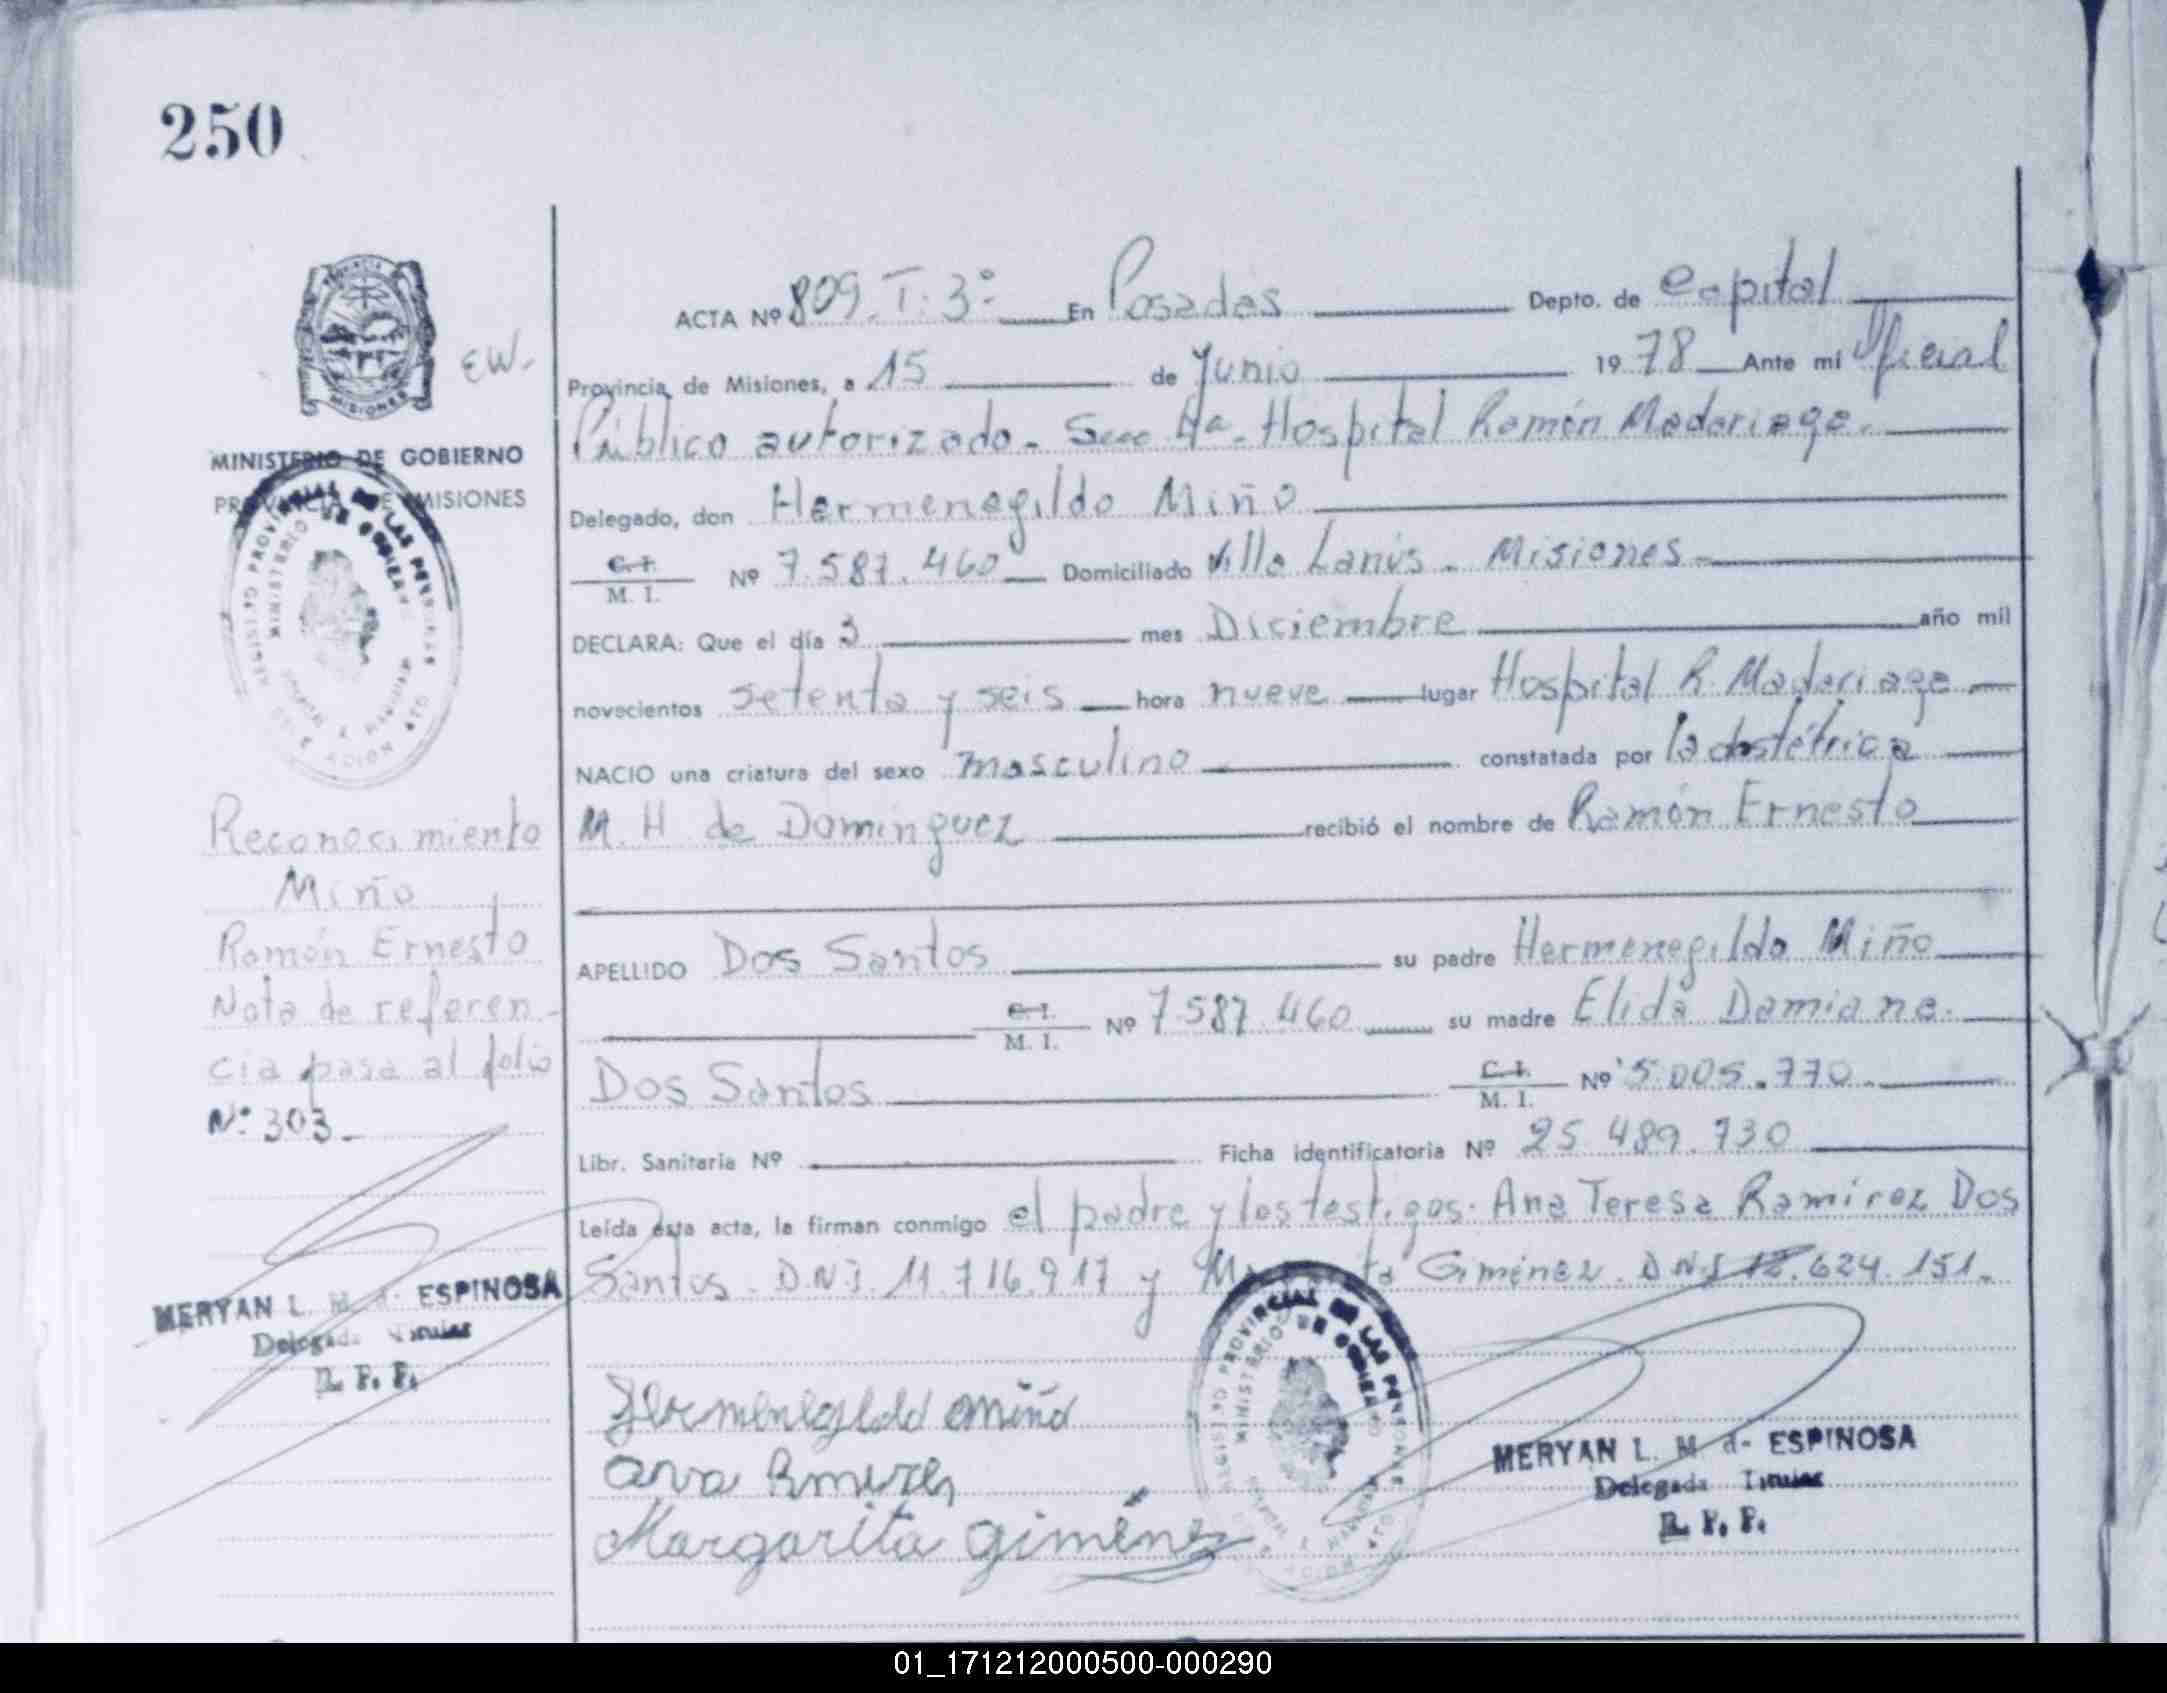 250
ACTA Nº 809. T. 3º En Posadas Depto. de Capital
EW.
Provincia de Misiones, a 15 de Junio 19 78 Ante mi Oficial
Público autorizado. Secc 4ª. Hospital Ramón Madariaga.
MINISTERIO DE GOBIERNO
PROVINCIA DE MISIONES
Delegado, don Hermenegildo Miño
C. I.
M. I. Nº 7.587.460 Domiciliado Villa Lanús. Misiones
DECLARA: Que el día 3 mes Diciembre año mil
novecientos setenta y seis hora nueve lugar Hospital R. Madariaga
NACIO una criatura del sexo masculino constatada por la obstétrica
M. H de Dominguez recibió el nombre de Ramón Ernesto
APELLIDO Dos Santos su padre Hermenegildo Miño
C. I.
M. I. Nº 7.587.460 su madre Elida Damiana.
Dos Santos C. I.
M. I. Nº 5.005.770.
Libr. Sanitaria Nº Ficha identificatoria Nº 25.489.730
Leída ésta acta, la firman conmigo el padre y los testigos. Ana Teresa Ramirez Dos
Santos. D.N.I. 11.716.917 y Giménez. D.N.I 12.624.151.
Reconocimiento
Miño
Ramón Ernesto
Nota de referen-
cia pasa al folio
Nº 303.
MERYAN L. M. de ESPINOSA
Delegada Titular
R. P. P.
Hermenegildo Miño
Ana Rmirez
Margarita Giménez
MERYAN L. M de ESPINOSA
Delegada Titular
R. P. P.
01_171212000500-000290